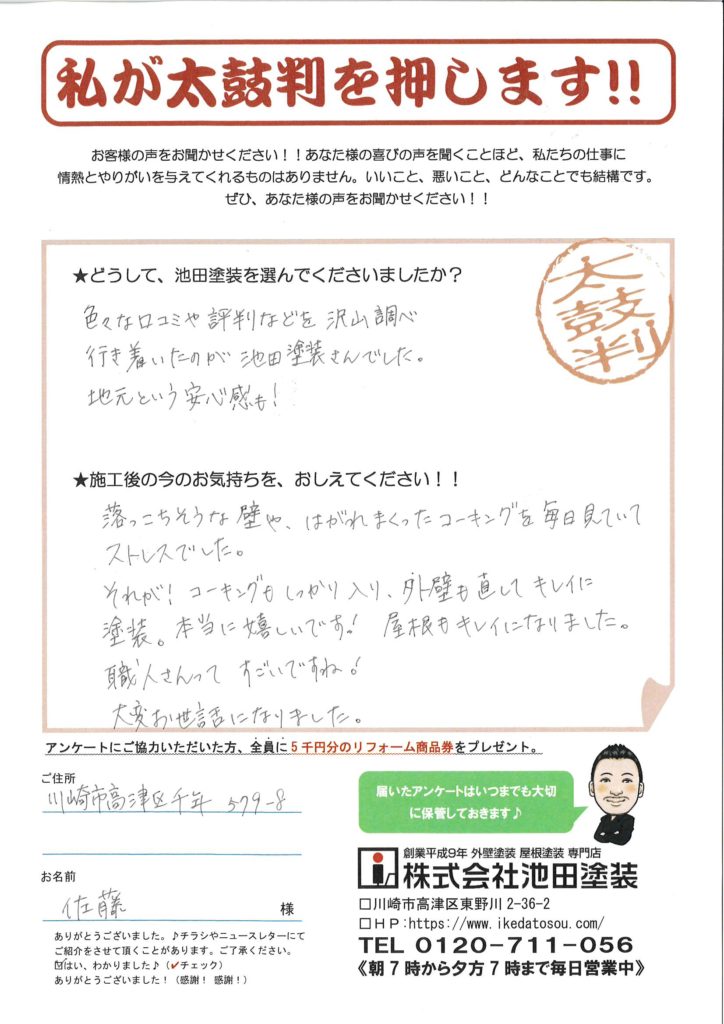 私が太鼓判を押します!!
お客様の声をお聞かせください！！あなた様の喜びの声を聞くことほど、私たちの仕事に
情熱とやりがいを与えてくれるものはありません。いいこと、悪いこと、どんなことでも結構です。
ぜひ、あなた様の声をお聞かせください！！
太鼓判
★どうして、池田塗装を選んでくださいましたか？
色々な口コミや評判などを沢山調べ
行き着いたのが池田塗装さんでした。
地元という安心感も！
★施工後の今のお気持ちを、おしえてください！！
落っこちそうな壁や、はがれまくったコーキングを毎日見ていて
ストレスでした。
それが！コーキングもしっかり入り、外壁も直してキレイに
塗装。本当に嬉しいです！屋根もキレイになりました。
職人さんってすごいですね！
大変お世話になりました。
アンケートにご協力いただいた方、全員に５千円分のリフォーム商品券をプレゼント。
ご住所
川崎市高津区千年 579-8
お名前
佐藤 様
ありがとうございました。♪チラシやニュースレターにて
ご紹介をさせて頂くことがあります。ご了承ください。
☑はい、わかりました♪（✔チェック）
ありがとうございました！（感謝！感謝！）
届いたアンケートはいつまでも大切
に保管しておきます♪
創業平成9年 外壁塗装 屋根塗装 専門店
株式会社池田塗装
□川崎市高津区東野川 2-36-2
□ＨＰ:https://www.ikedatosou.com/
TEL 0120-711-056
《朝７時から夕方７時まで毎日営業中》